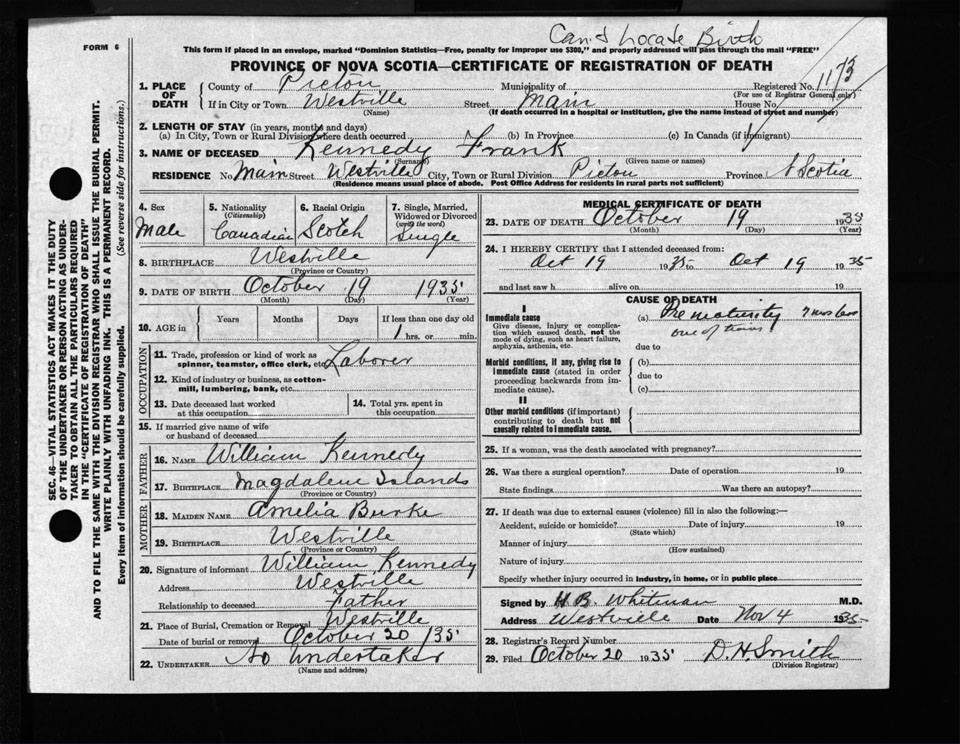 Can't Locate Birth
FORM 6
This form if placed in an envelope, marked "Dominion Statistics—Free, penalty for improper use $300," and properly addressed will pass through the mail "FREE"
PROVINCE OF NOVA SCOTIA—CERTIFICATE OF REGISTRATION OF DEATH
1. PLACE OF DEATH
County of Pictou Municipality of Registered No. 1173
(For use of Registrar General only)
If in City or Town Westville Street Main House No.
(Name) (If death occurred in a hospital or institution, give the name instead of street and number)
2. LENGTH OF STAY (in years, months and days)
(a) In City, Town or Rural Division where death occurred (b) In Province (c) In Canada (if immigrant)
3. NAME OF DECEASED Kennedy Frank
(Surname) (Given name or names)
RESIDENCE No Main Street Westville City, Town or Rural Division Pictou Province N Scotia
(Residence means usual place of abode. Post Office Address for residents in rural parts not sufficient)
4. Sex
Male
5. Nationality
(Citizenship)
Canadian
6. Racial Origin
Scotch
7. Single, Married, Widowed or Divorced
(write the word)
Single
8. BIRTHPLACE Westville
(Province or Country)
9. DATE OF BIRTH October 19 1935
(Month) (Day) (Year)
10. AGE in
Years Months Days If less than one day old
1 hrs. or min.
OCCUPATION
11. Trade, profession or kind of work as spinner, teamster, office clerk, etc. Laborer
12. Kind of industry or business, as cotton-mill, lumbering, bank, etc.
13. Date deceased last worked at this occupation
14. Total yrs. spent in this occupation
15. If married give name of wife or husband of deceased
FATHER
16. NAME William Kennedy
17. BIRTHPLACE Magdalene Islands
(Province or Country)
MOTHER
18. MAIDEN NAME Amelia Burke
19. BIRTHPLACE Westville
(Province or Country)
20. Signature of informant William Kennedy
Address Westville
Relationship to deceased Father
21. Place of Burial, Cremation or Removal Westville
Date of burial or removal October 20 /35
22. UNDERTAKER No Undertaker
(Name and address)
MEDICAL CERTIFICATE OF DEATH
23. DATE OF DEATH October 19 1935
(Month) (Day) (Year)
24. I HEREBY CERTIFY that I attended deceased from:
Oct 19 1935 to Oct 19 1935
and last saw h alive on 19
CAUSE OF DEATH
I
Immediate cause
Give disease, injury or complication which caused death, not the mode of dying, such as heart failure, asphyxia, asthenia, etc.
(a) Prematurity 7 mos
one of twins
due to
Morbid conditions, if any, giving rise to immediate cause (stated in order proceeding backwards from immediate cause).
(b)
due to
(c)
II
Other morbid conditions (if important) contributing to death but not causally related to immediate cause.
25. If a woman, was the death associated with pregnancy?
26. Was there a surgical operation? Date of operation 19
State findings Was there an autopsy?
27. If death was due to external causes (violence) fill in also the following:—
Accident, suicide or homicide? Date of injury 19
(State which)
Manner of injury
(How sustained)
Nature of injury
Specify whether injury occurred in industry, in home, or in public place
Signed by H. B. Whitman M.D.
Address Westville Date Nov 4 1935
28. Registrar's Record Number
29. Filed October 20 1935 D. H. Smith
(Division Registrar)
SEC. 46—VITAL STATISTICS ACT MAKES IT THE DUTY
OF THE UNDERTAKER OR PERSON ACTING AS UNDER-
TAKER TO OBTAIN ALL THE PARTICULARS REQUIRED
IN THE "CERTIFICATE OF REGISTRATION OF DEATH"
AND TO FILE THE SAME WITH THE DIVISION REGISTRAR WHO SHALL ISSUE THE BURIAL PERMIT.
WRITE PLAINLY WITH UNFADING INK. THIS IS A PERMANENT RECORD.
Every item of information should be carefully supplied. (See reverse side for instructions.)